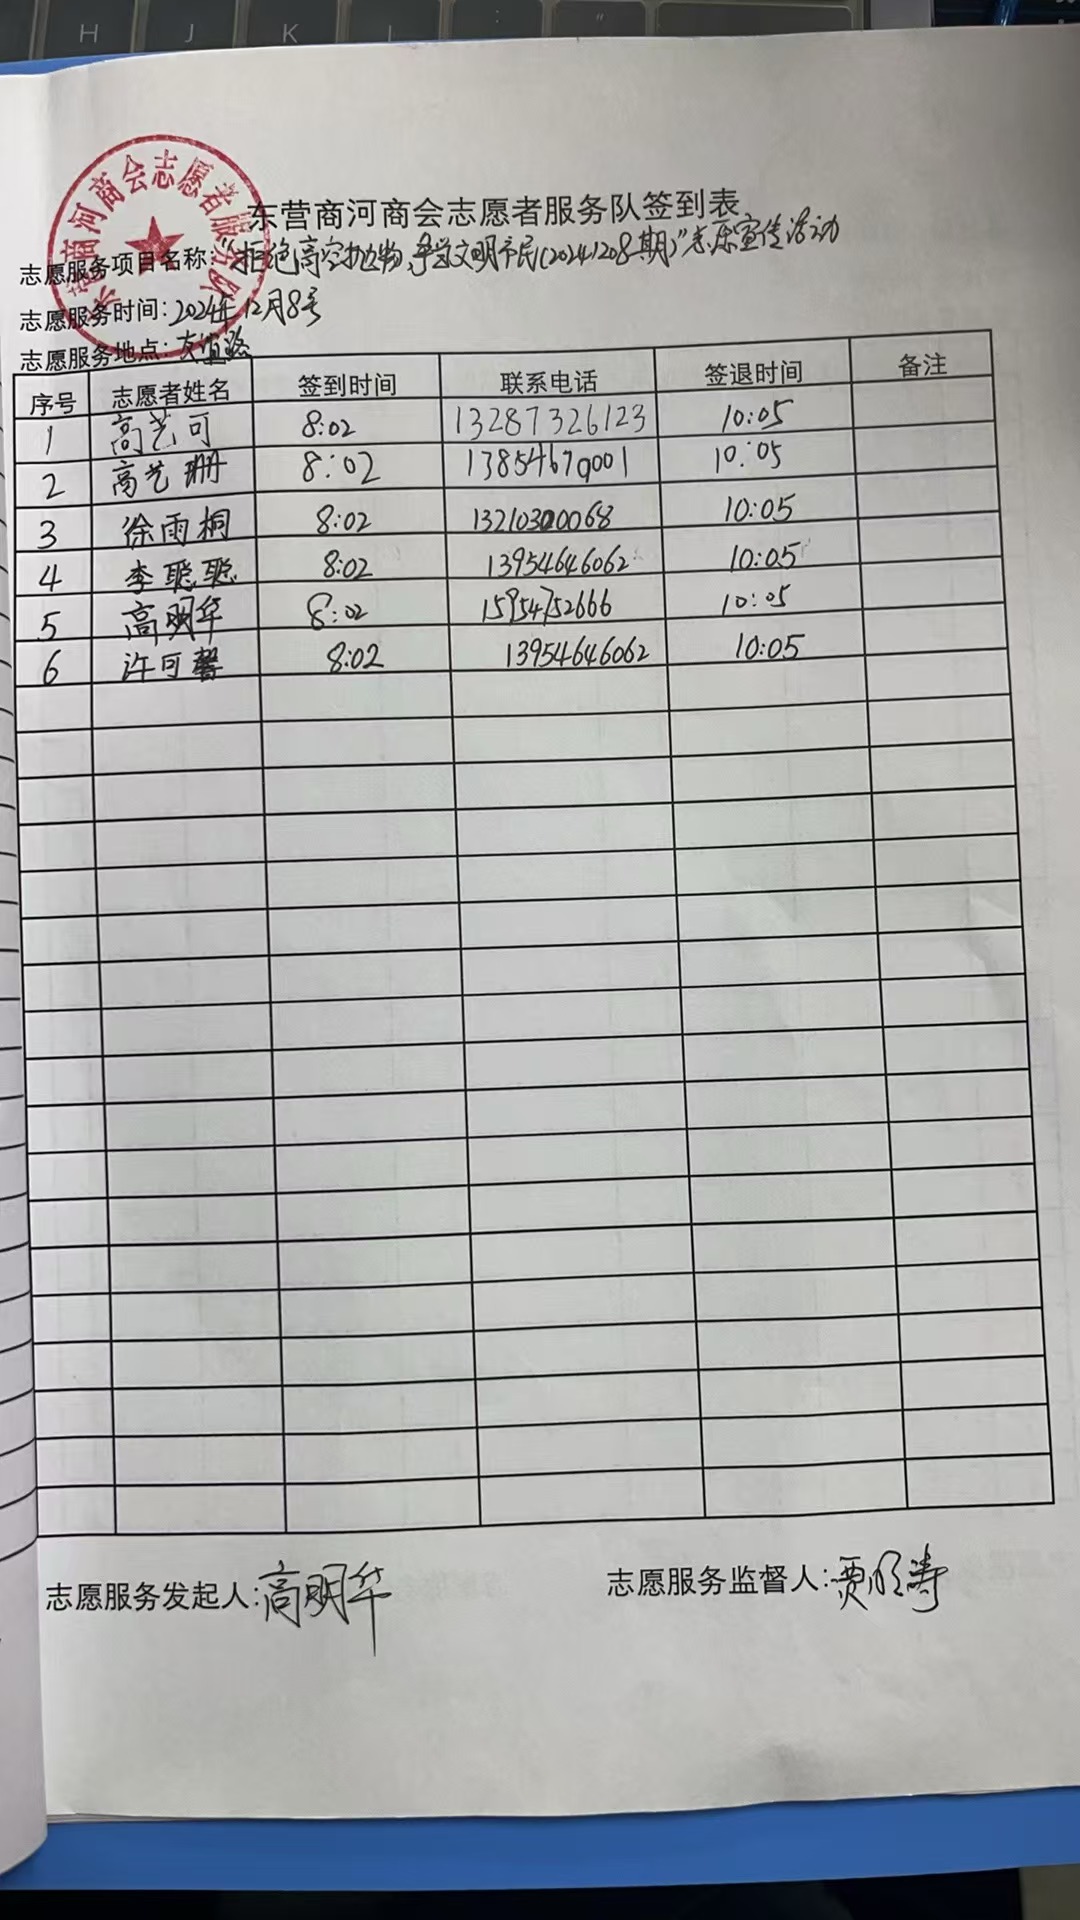 H J K L : "
东营商河商会志愿者服务队
东营商河商会志愿者服务队签到表
志愿服务项目名称:"拒绝高空抛物,争当文明市民(20241208期)"志愿宣传活动
志愿服务时间:2024年12月8号
志愿服务地点:友谊路
序号 志愿者姓名 签到时间 联系电话 签退时间 备注
1 高艺可 8:02 13287326123 10:05
2 高艺珊 8:02 13854670001 10:05
3 徐雨桐 8:02 13210300068 10:05
4 李聪聪 8:02 13954646062 10:05
5 高明华 8:02 15954752666 10:05
6 许可馨 8:02 13954646062 10:05
志愿服务发起人:高明华 志愿服务监督人:贾